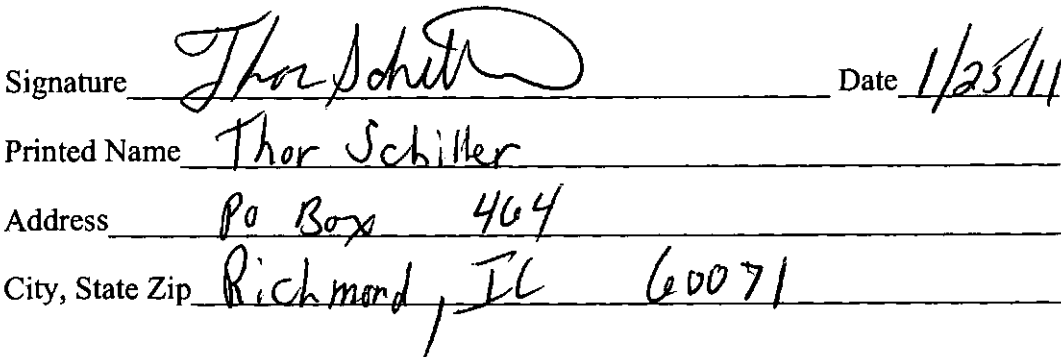 Signature Thor Schiller Date 1/25/11
Printed Name Thor Schiller
Address PO Box 464
City, State Zip Richmond, IL 60071